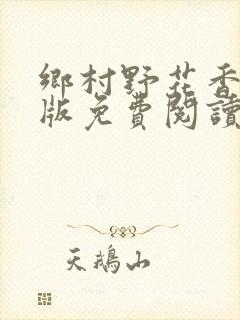 鄉村野花香
版免費閱讀
天鵝山